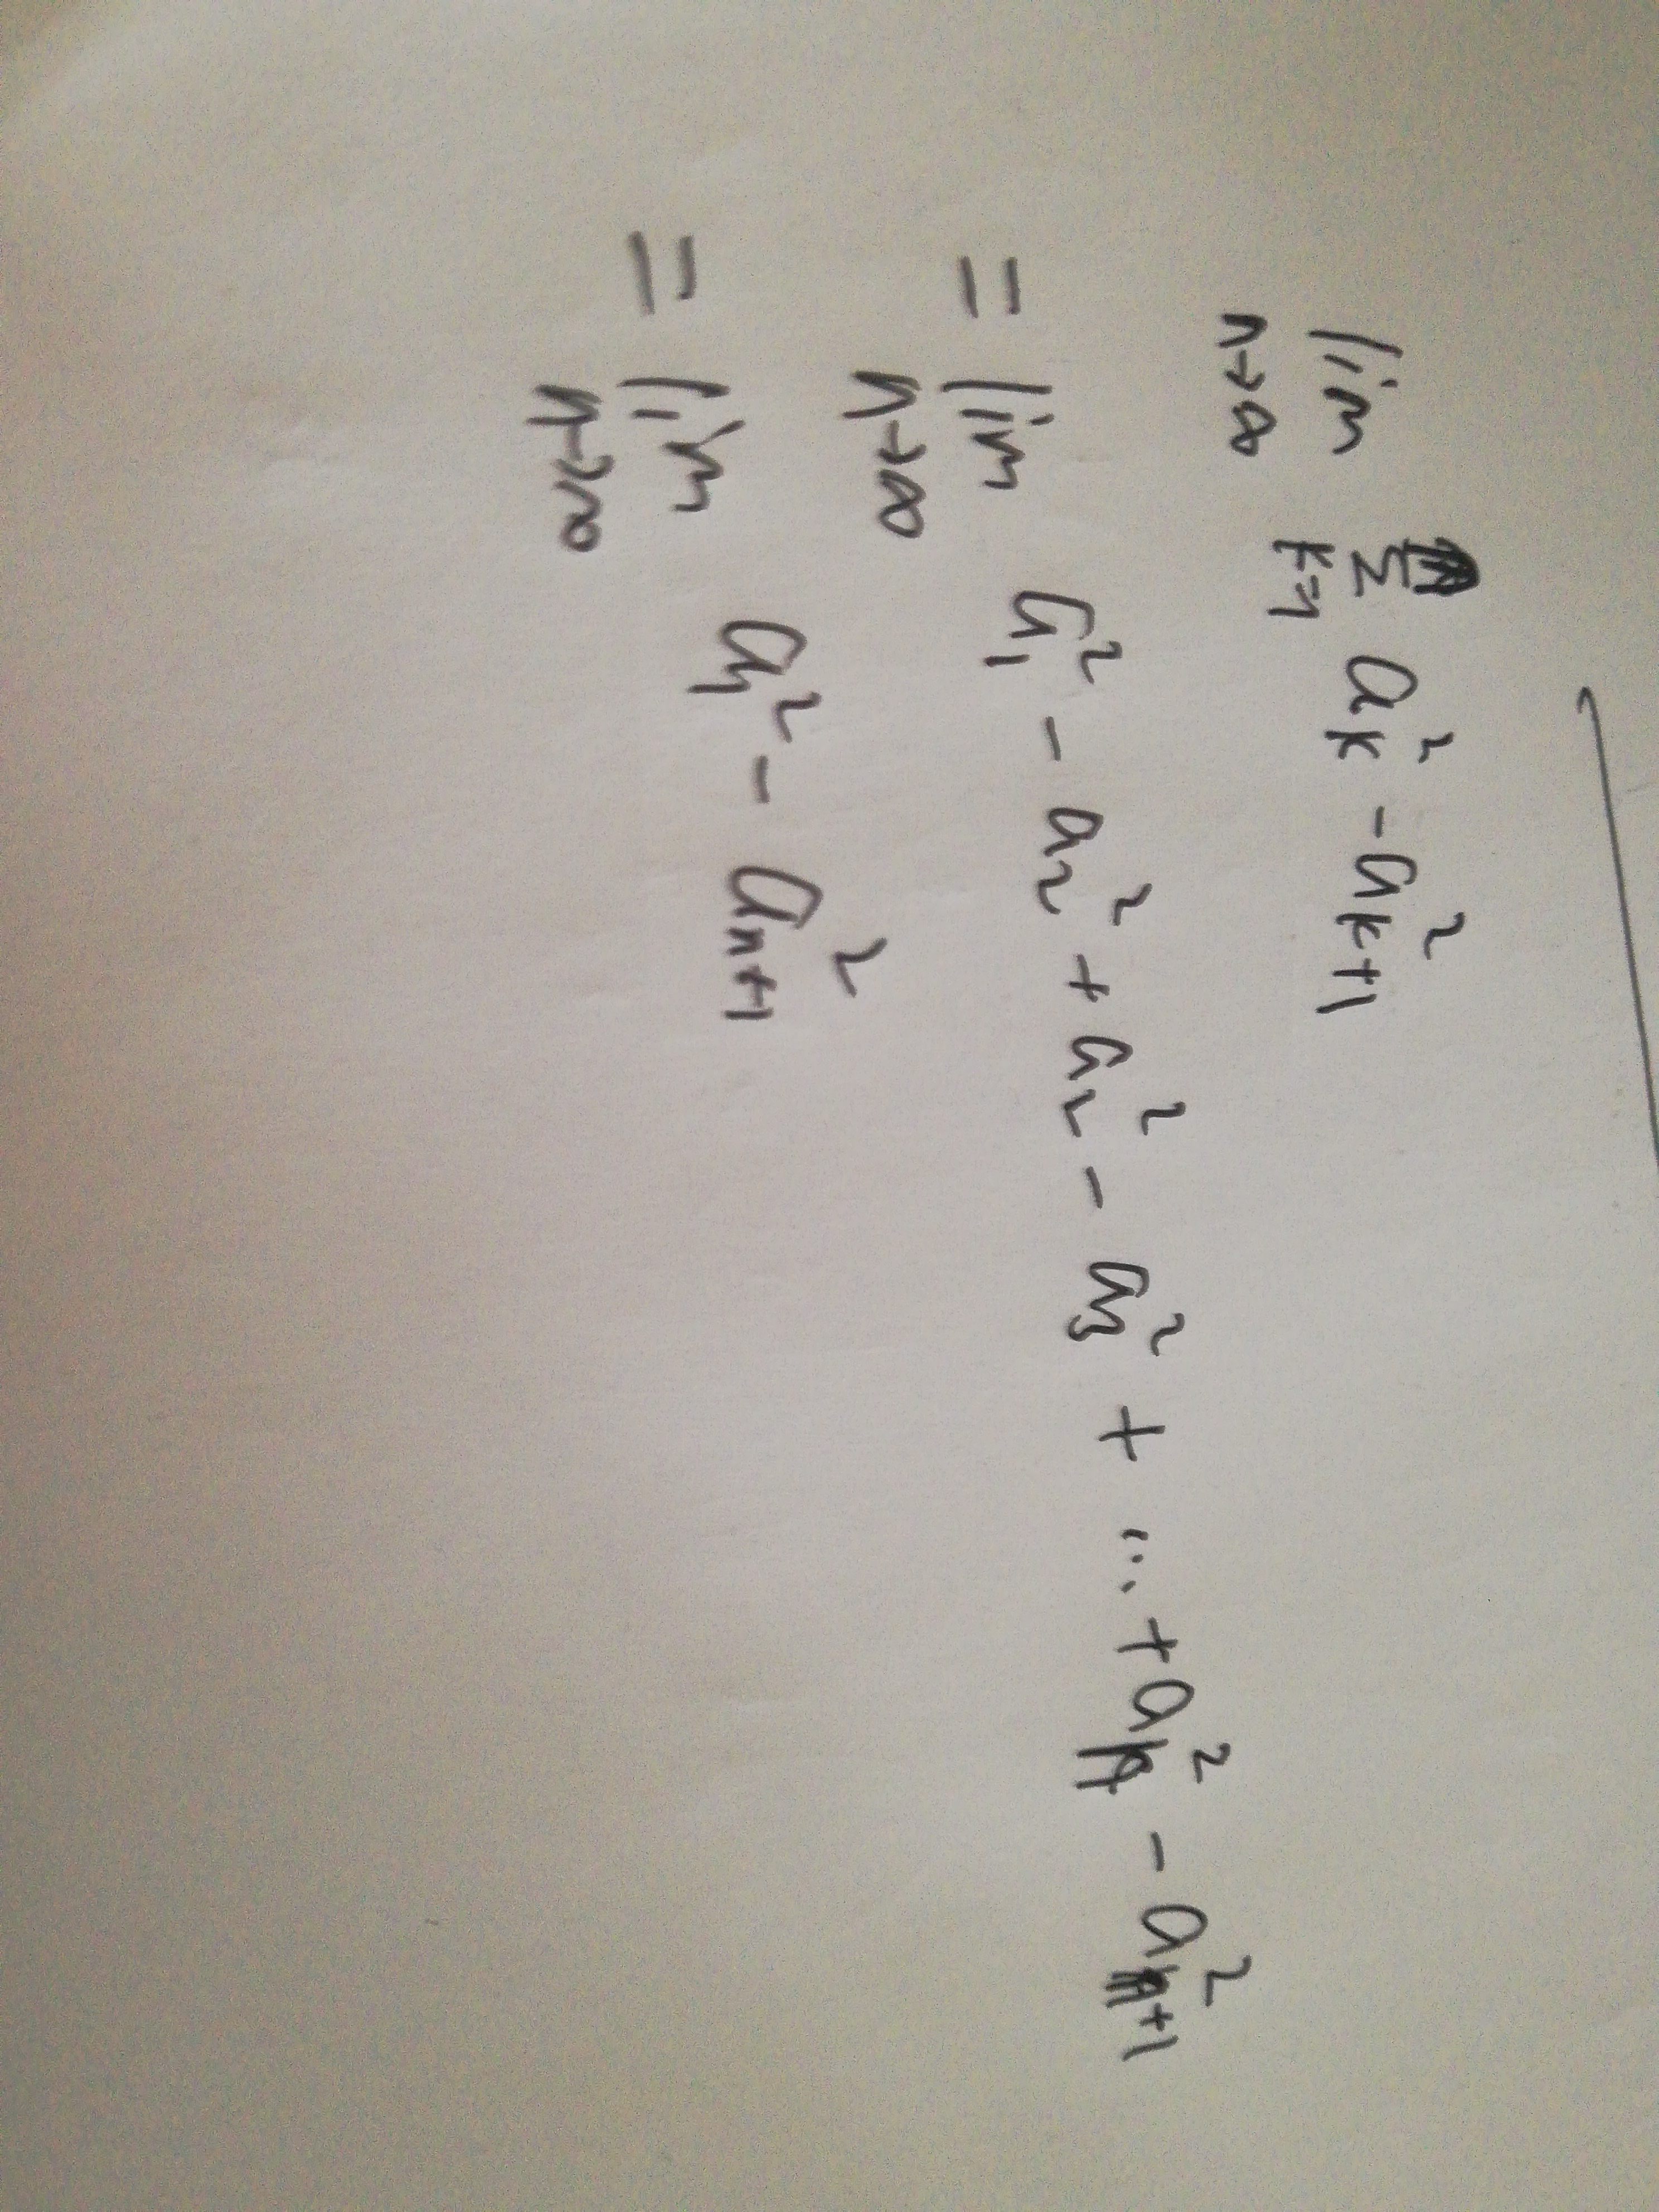 lim n→∞ Σ k=1 a_k^2 - a_{k+1}^2
= lim n→∞ a_1^2 - a_2^2 + a_2^2 - a_3^2 + ... + a_n^2 - a_{n+1}^2
= lim n→∞ a_1^2 - a_{n+1}^2